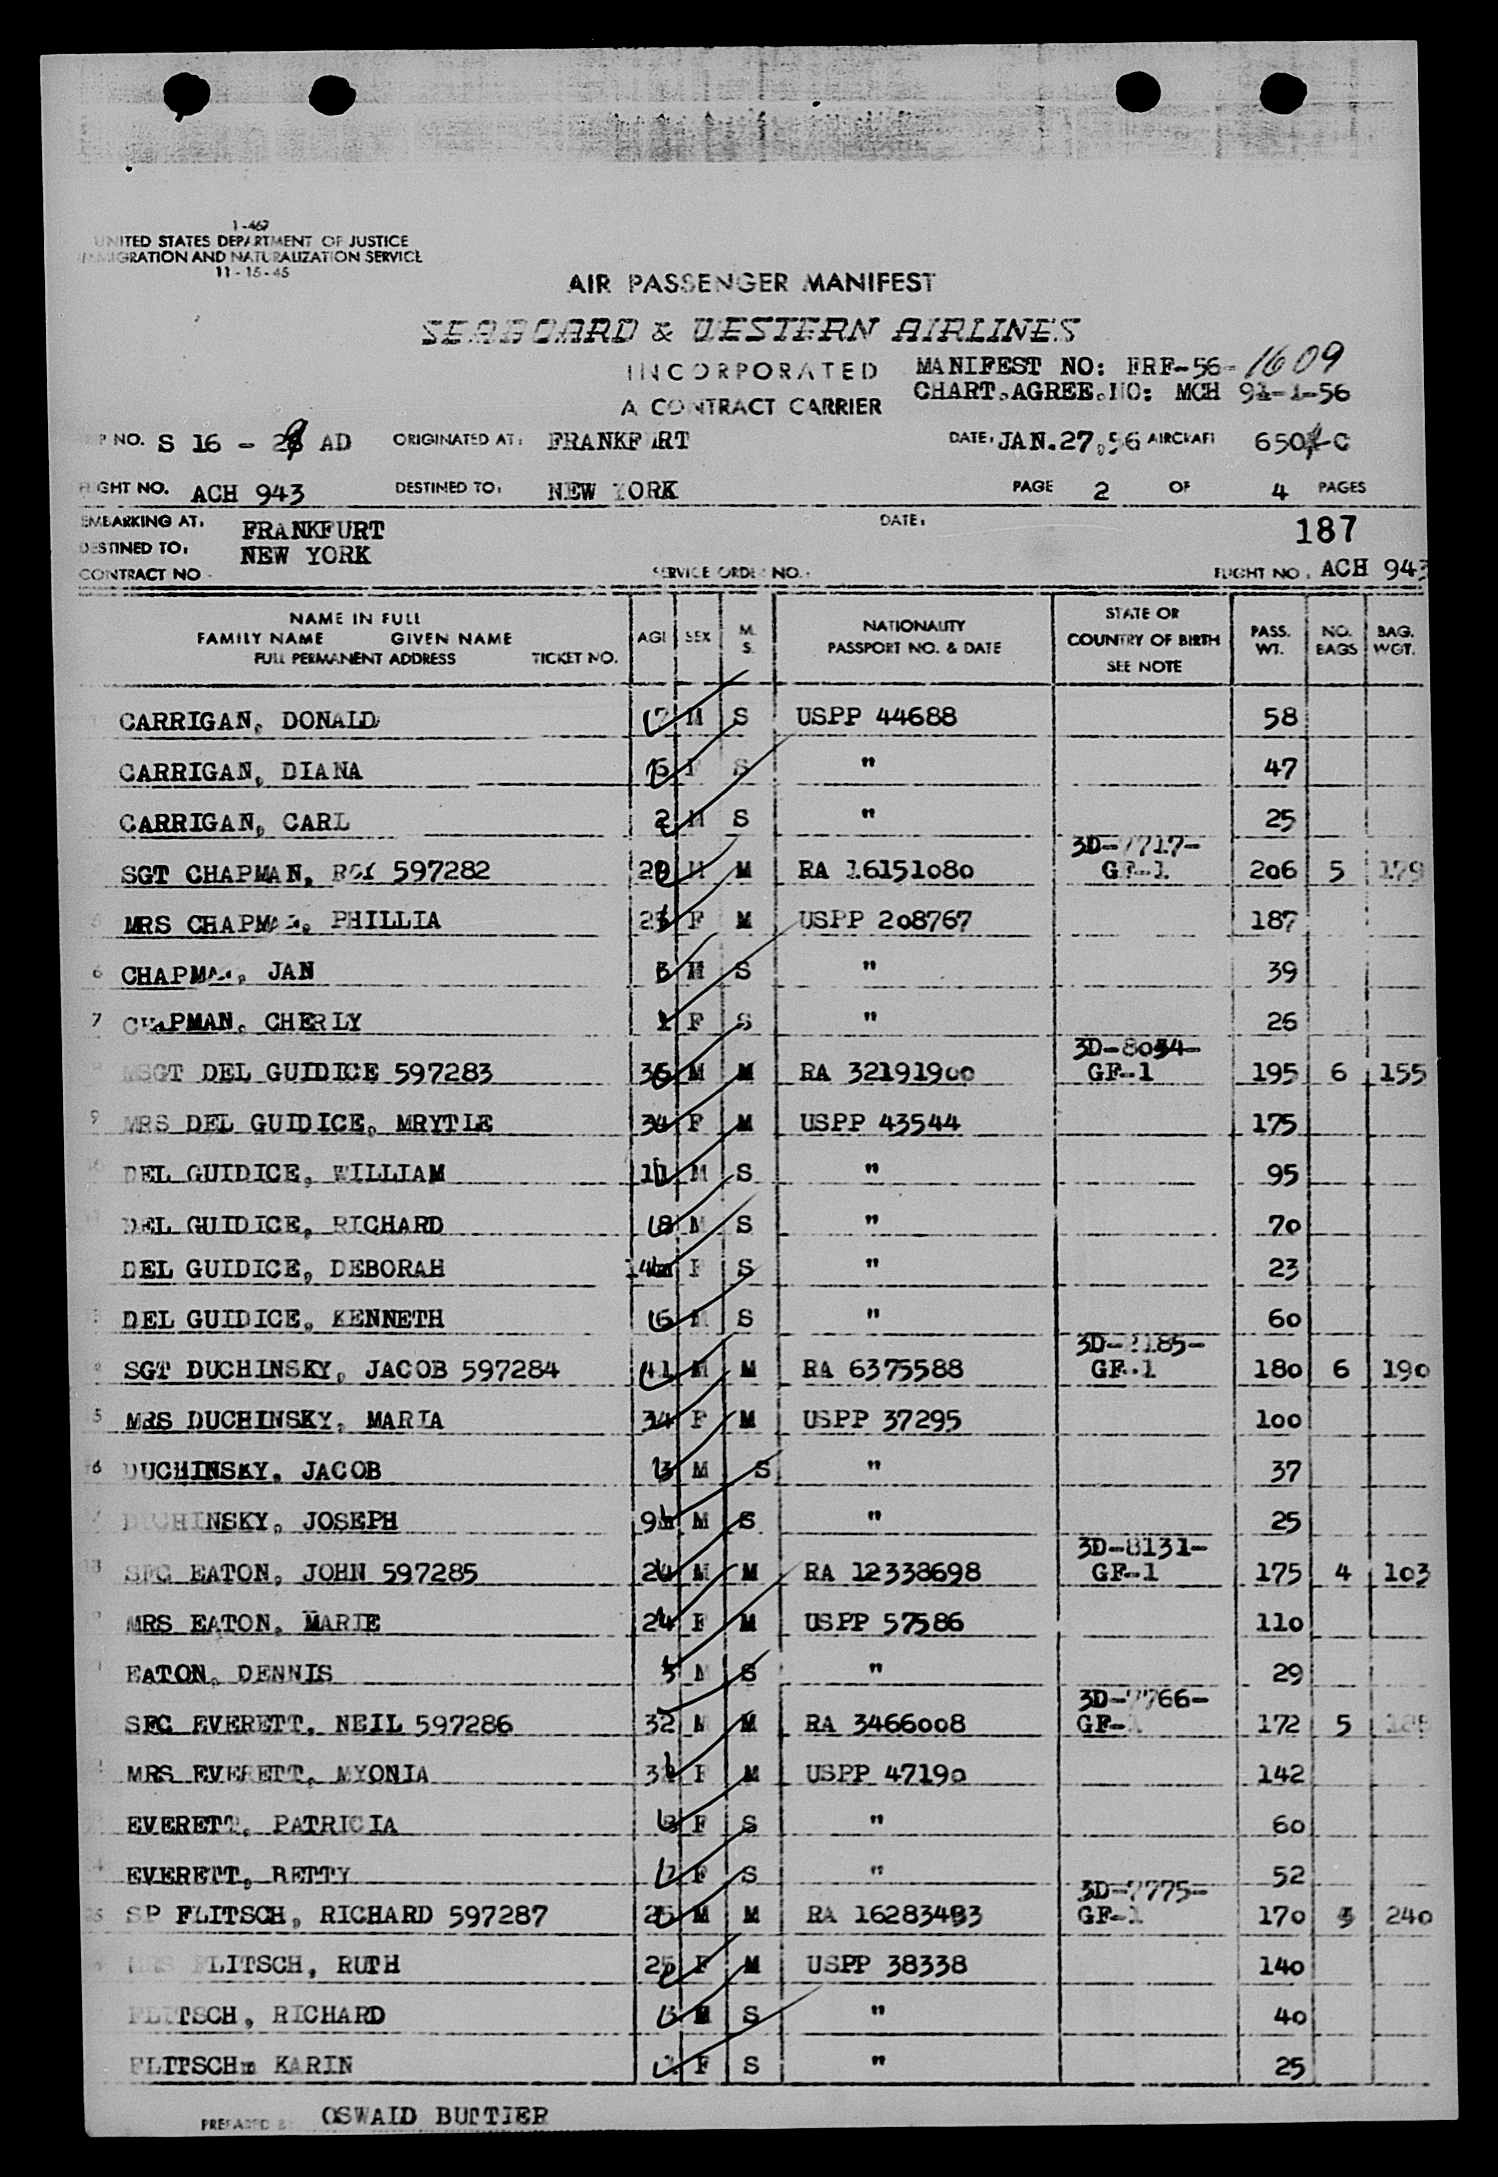 1-467
UNITED STATES DEPARTMENT OF JUSTICE
IMMIGRATION AND NATURALIZATION SERVICE
11-15-45
AIR PASSENGER MANIFEST
SEABOARD & WESTERN AIRLINES
INCORPORATED MANIFEST NO: FRF-56-1609
CHART.AGREE.NO: MCH 91-1-56
A CONTRACT CARRIER
NO. S 16 - 29 AD ORIGINATED AT: FRANKFURT DATE: JAN.27,56 AIRCRAFT 650 -C
FLIGHT NO. ACH 943 DESTINED TO: NEW YORK PAGE 2 OF 4 PAGES
EMBARKING AT: FRANKFURT DATE: 187
DESTINED TO: NEW YORK
CONTRACT NO. SERVICE ORDER NO. FLIGHT NO. ACH 943
NAME IN FULL
FAMILY NAME GIVEN NAME
FULL PERMANENT ADDRESS TICKET NO. AGE SEX M. S. NATIONALITY PASSPORT NO. & DATE STATE OR COUNTRY OF BIRTH SEE NOTE PASS. WT. NO. BAGS BAG. WGT.
CARRIGAN, DONALD M S USPP 44688 58
CARRIGAN, DIANA F S " 47
CARRIGAN, CARL 2 M S " 25
SGT CHAPMAN, ROY 597282 M M RA 16151080 3D-7717-GF-1 206 5 179
MRS CHAPMAN, PHILLIA F M USPP 208767 187
6 CHAPMAN, JAN M S " 39
7 CHAPMAN, CHERLY 1 F S " 26
MSGT DEL GUIDICE 597283 36 M M RA 32191900 3D-8054-GF-1 195 6 155
9 MRS DEL GUIDICE, MRYTLE 34 F M USPP 43544 175
DEL GUIDICE, WILLIAM 11 M S " 95
DEL GUIDICE, RICHARD 8 M S " 70
DEL GUIDICE, DEBORAH 14m F S " 23
DEL GUIDICE, KENNETH 6 M S " 60
SGT DUCHINSKY, JACOB 597284 41 M M RA 6375588 3D- 185-GF-1 180 6 190
5 MRS DUCHINSKY, MARIA 34 F M USPP 37295 100
16 DUCHINSKY, JACOB 3 M S " 37
DUCHINSKY, JOSEPH 9m M S " 25
SFC EATON, JOHN 597285 24 M M RA 12338698 3D-8131-GF-1 175 4 103
MRS EATON, MARIE 24 F M USPP 57586 110
EATON, DENNIS M S " 29
SFC EVERETT, NEIL 597286 32 M M RA 3466008 3D-7766-GF-1 172 5
MRS EVERETT, MYONIA F M USPP 47190 142
EVERETT, PATRICIA F S " 60
EVERETT, BETTY F S " 52
25 SP FLITSCH, RICHARD 597287 M M RA 16283493 3D-7775-GF-1 170 5 240
MRS FLITSCH, RUTH 25 F M USPP 38338 140
FLITSCH, RICHARD 3 M S " 40
FLITSCHm KARIN F S " 25
PREPARED BY OSWALD BUTTIER